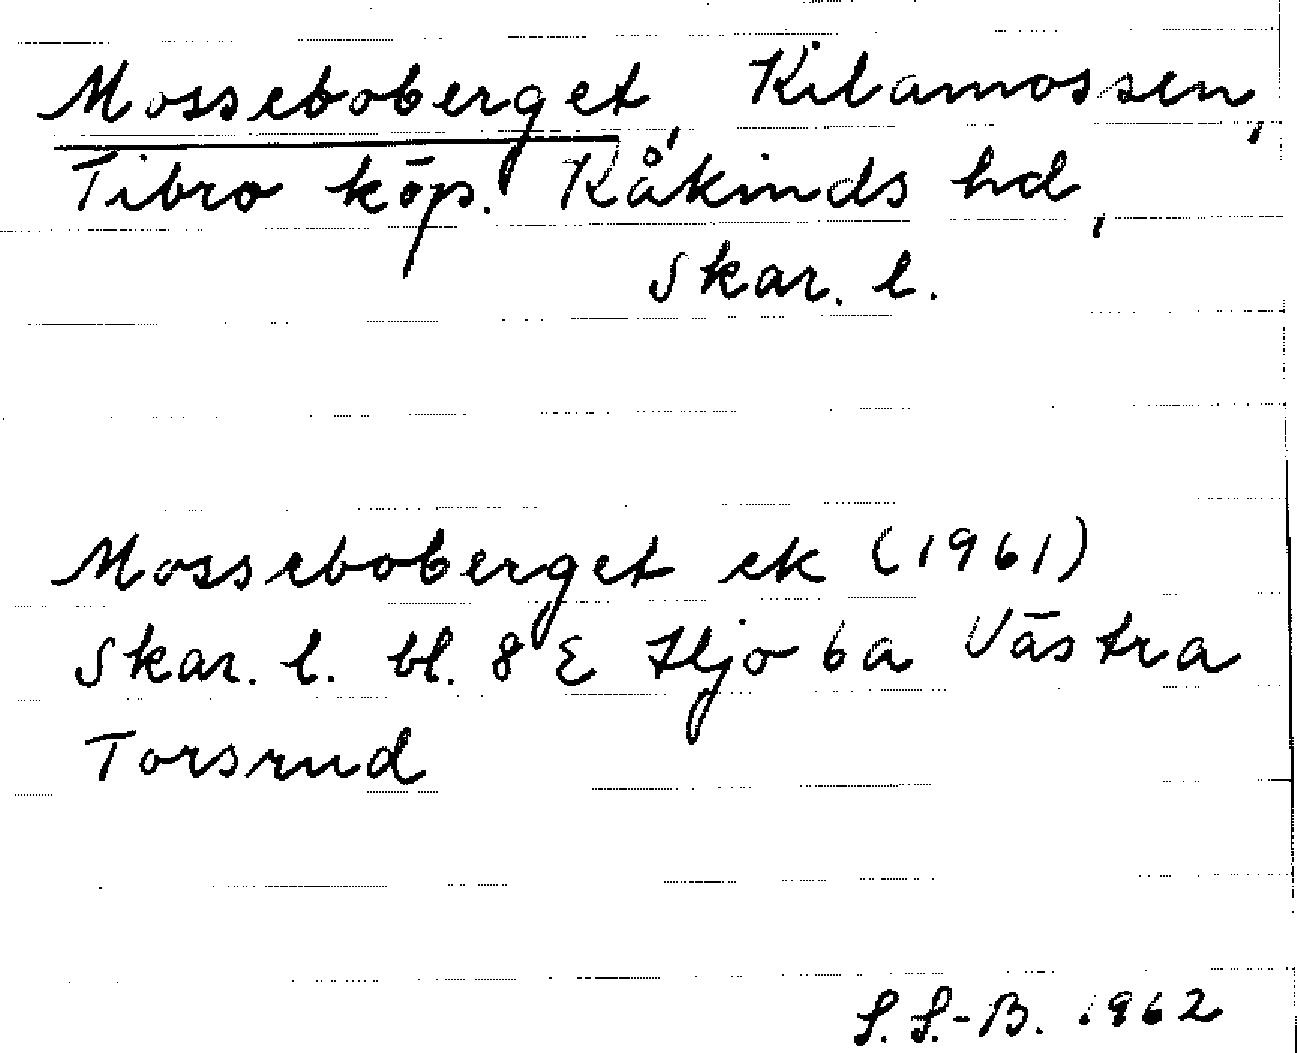 Mosseboberget, Kilamossen,
Tibro köp. Kåkinds hd,
Skar. l.
Mosseboberget ek (1961)
Skar. l. bl. 8 E Hjo 6a Västra
Torsrud
S. S.-B. 1962